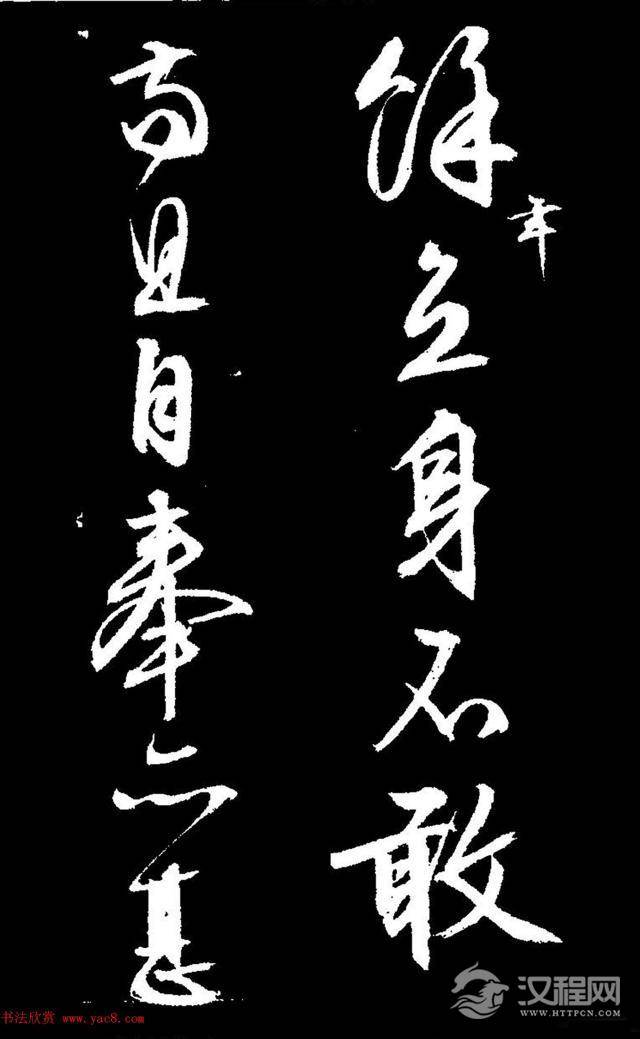 餘年立身不敢
高且自奉亦甚
汉程网
WWW.HTTPCN.COM
书法欣赏 www.yac8.com